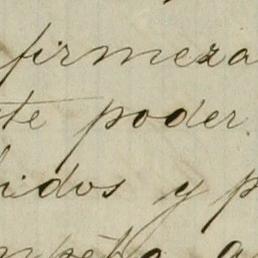 firmeza
te poder.
idos y p